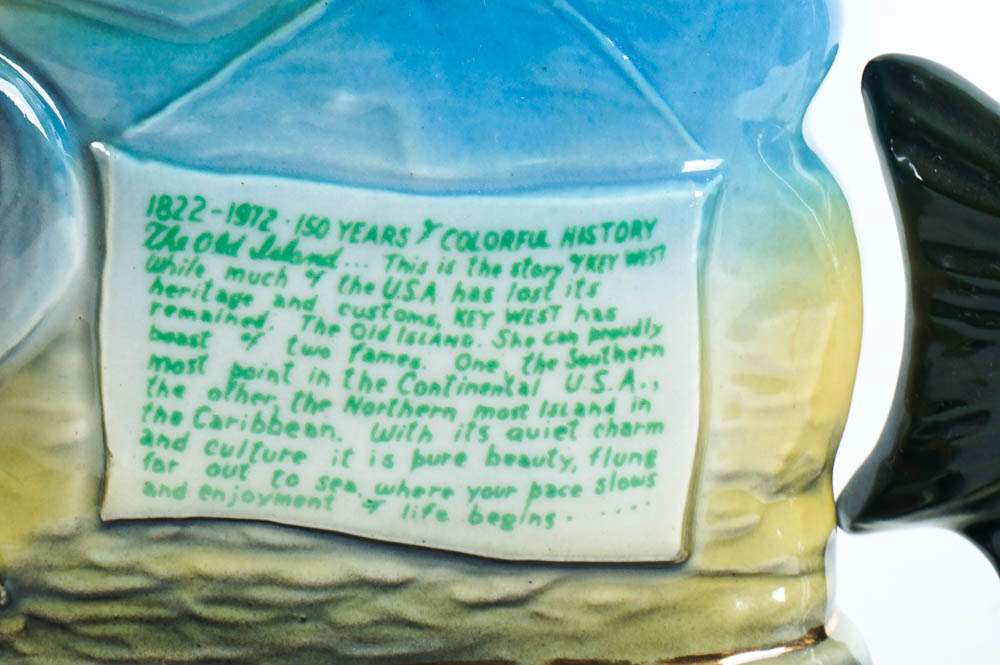 1822-1972 · 150 YEARS of COLORFUL HISTORY
The Old Island... This is the story of KEY WEST
while much of the U.S.A has lost its
heritage and customs, KEY WEST has
remained, The Old ISLAND. She can proudly
boast of two fames. One, the Southern
most point in the Continental U.S.A.,
the other, the Northern most Island in
the Caribbean. With its quiet charm
and culture it is pure beauty, flung
far out to sea, where your pace slows
and enjoyment of life begins. ....